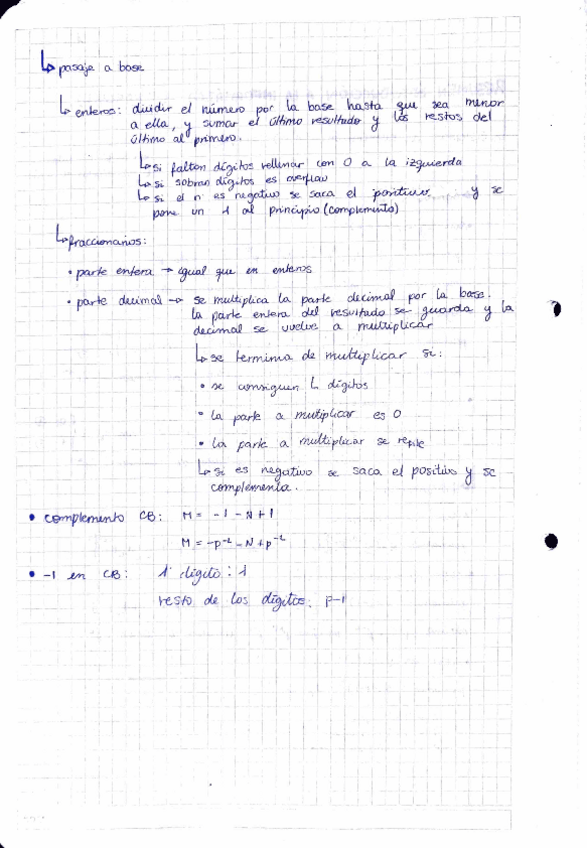 ↳ pasaje a base
↳ enteros: dividir el número por la base hasta que sea menor
a ella, y sumar el último resultado y los restos del
último al primero.
↳ si faltan dígitos rellenar con 0 a la izquierda
↳ si sobran dígitos es overflow
↳ si el nº es negativo se saca el positivo y se
pone un 1 al principio (complemento)
↳ fraccionarios:
• parte entera → igual que en enteros
• parte decimal → se multiplica la parte decimal por la base.
la parte entera del resultado se guarda y la
decimal se vuelve a multiplicar
↳ se termina de multiplicar si:
• se consiguen L dígitos
• la parte a multiplicar es 0
• la parte a multiplicar se repite
↳ si es negativo se saca el positivo y se
complementa.
• complemento CB: M = -1 - N + 1
M = -p⁻ᴸ - N + p⁻ᴸ
• -1 en CB: 1º dígito: 1
resto de los dígitos: p-1